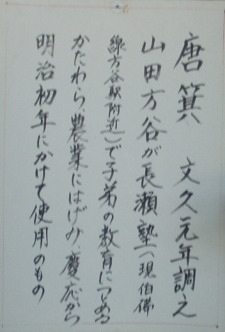 唐箕　文久元年調え
山田方谷が長瀬塾(現伯備
線方谷駅附近)で子弟の教育につとめる
かたわら農業にはげみ慶応から
明治初年にかけて使用のもの